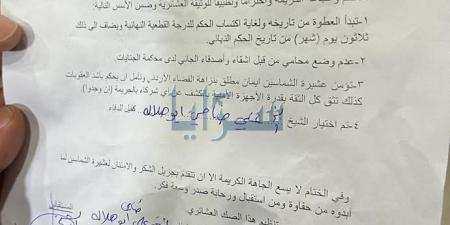 وضمن الأسس التالية:
١-تبدأ العطوة من تاريخه ولغاية اكتساب الحكم للدرجة القطعية النهائية ويضاف الى ذلك
ثلاثون يوم (شهر) من تاريخ الحكم النهائي.
٢-عدم وضع محامي من قبل اشقاء وأصدقاء الجاني لدى محكمة الجنايات.
٣-تؤمن عشيرة الشماسين ايمان مطلق بنزاهة القضاء الأردني ونأمل ان يحكم بأشد العقوبات
كذلك تثق كل الثقة بقدرة الأجهزة الأمنية بالكشف عن أي شركاء بالجريمة (ان وجدوا)
٤-تم اختيار الشيخ ضاحي ابو صلاله كفيل للدفاء
وفي الختام لا يسع الجاهة الكريمة الا ان تتقدم بجزيل الشكر والامتنان لعشيرة الشماسين لما
أبدوه من حفاوة ومن استقبال ورحابة صدر وسعة فكر.
تنظيم هذا الصك العشائري
سرايا